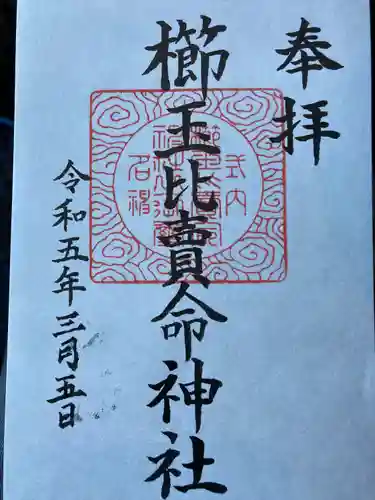 奉拝
櫛玉比賣命神社
式内
名神
令和五年三月五日